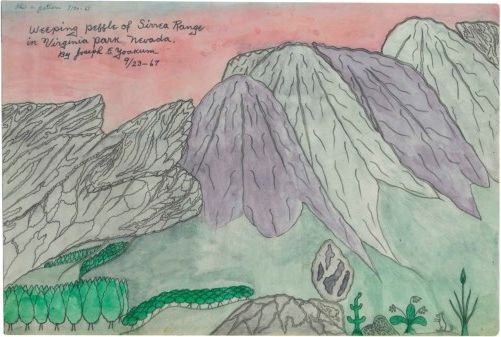 Weeping pebble of Sirrea Range
in Virginia park Nevada.
By Joseph E Yoakum
9/23-67